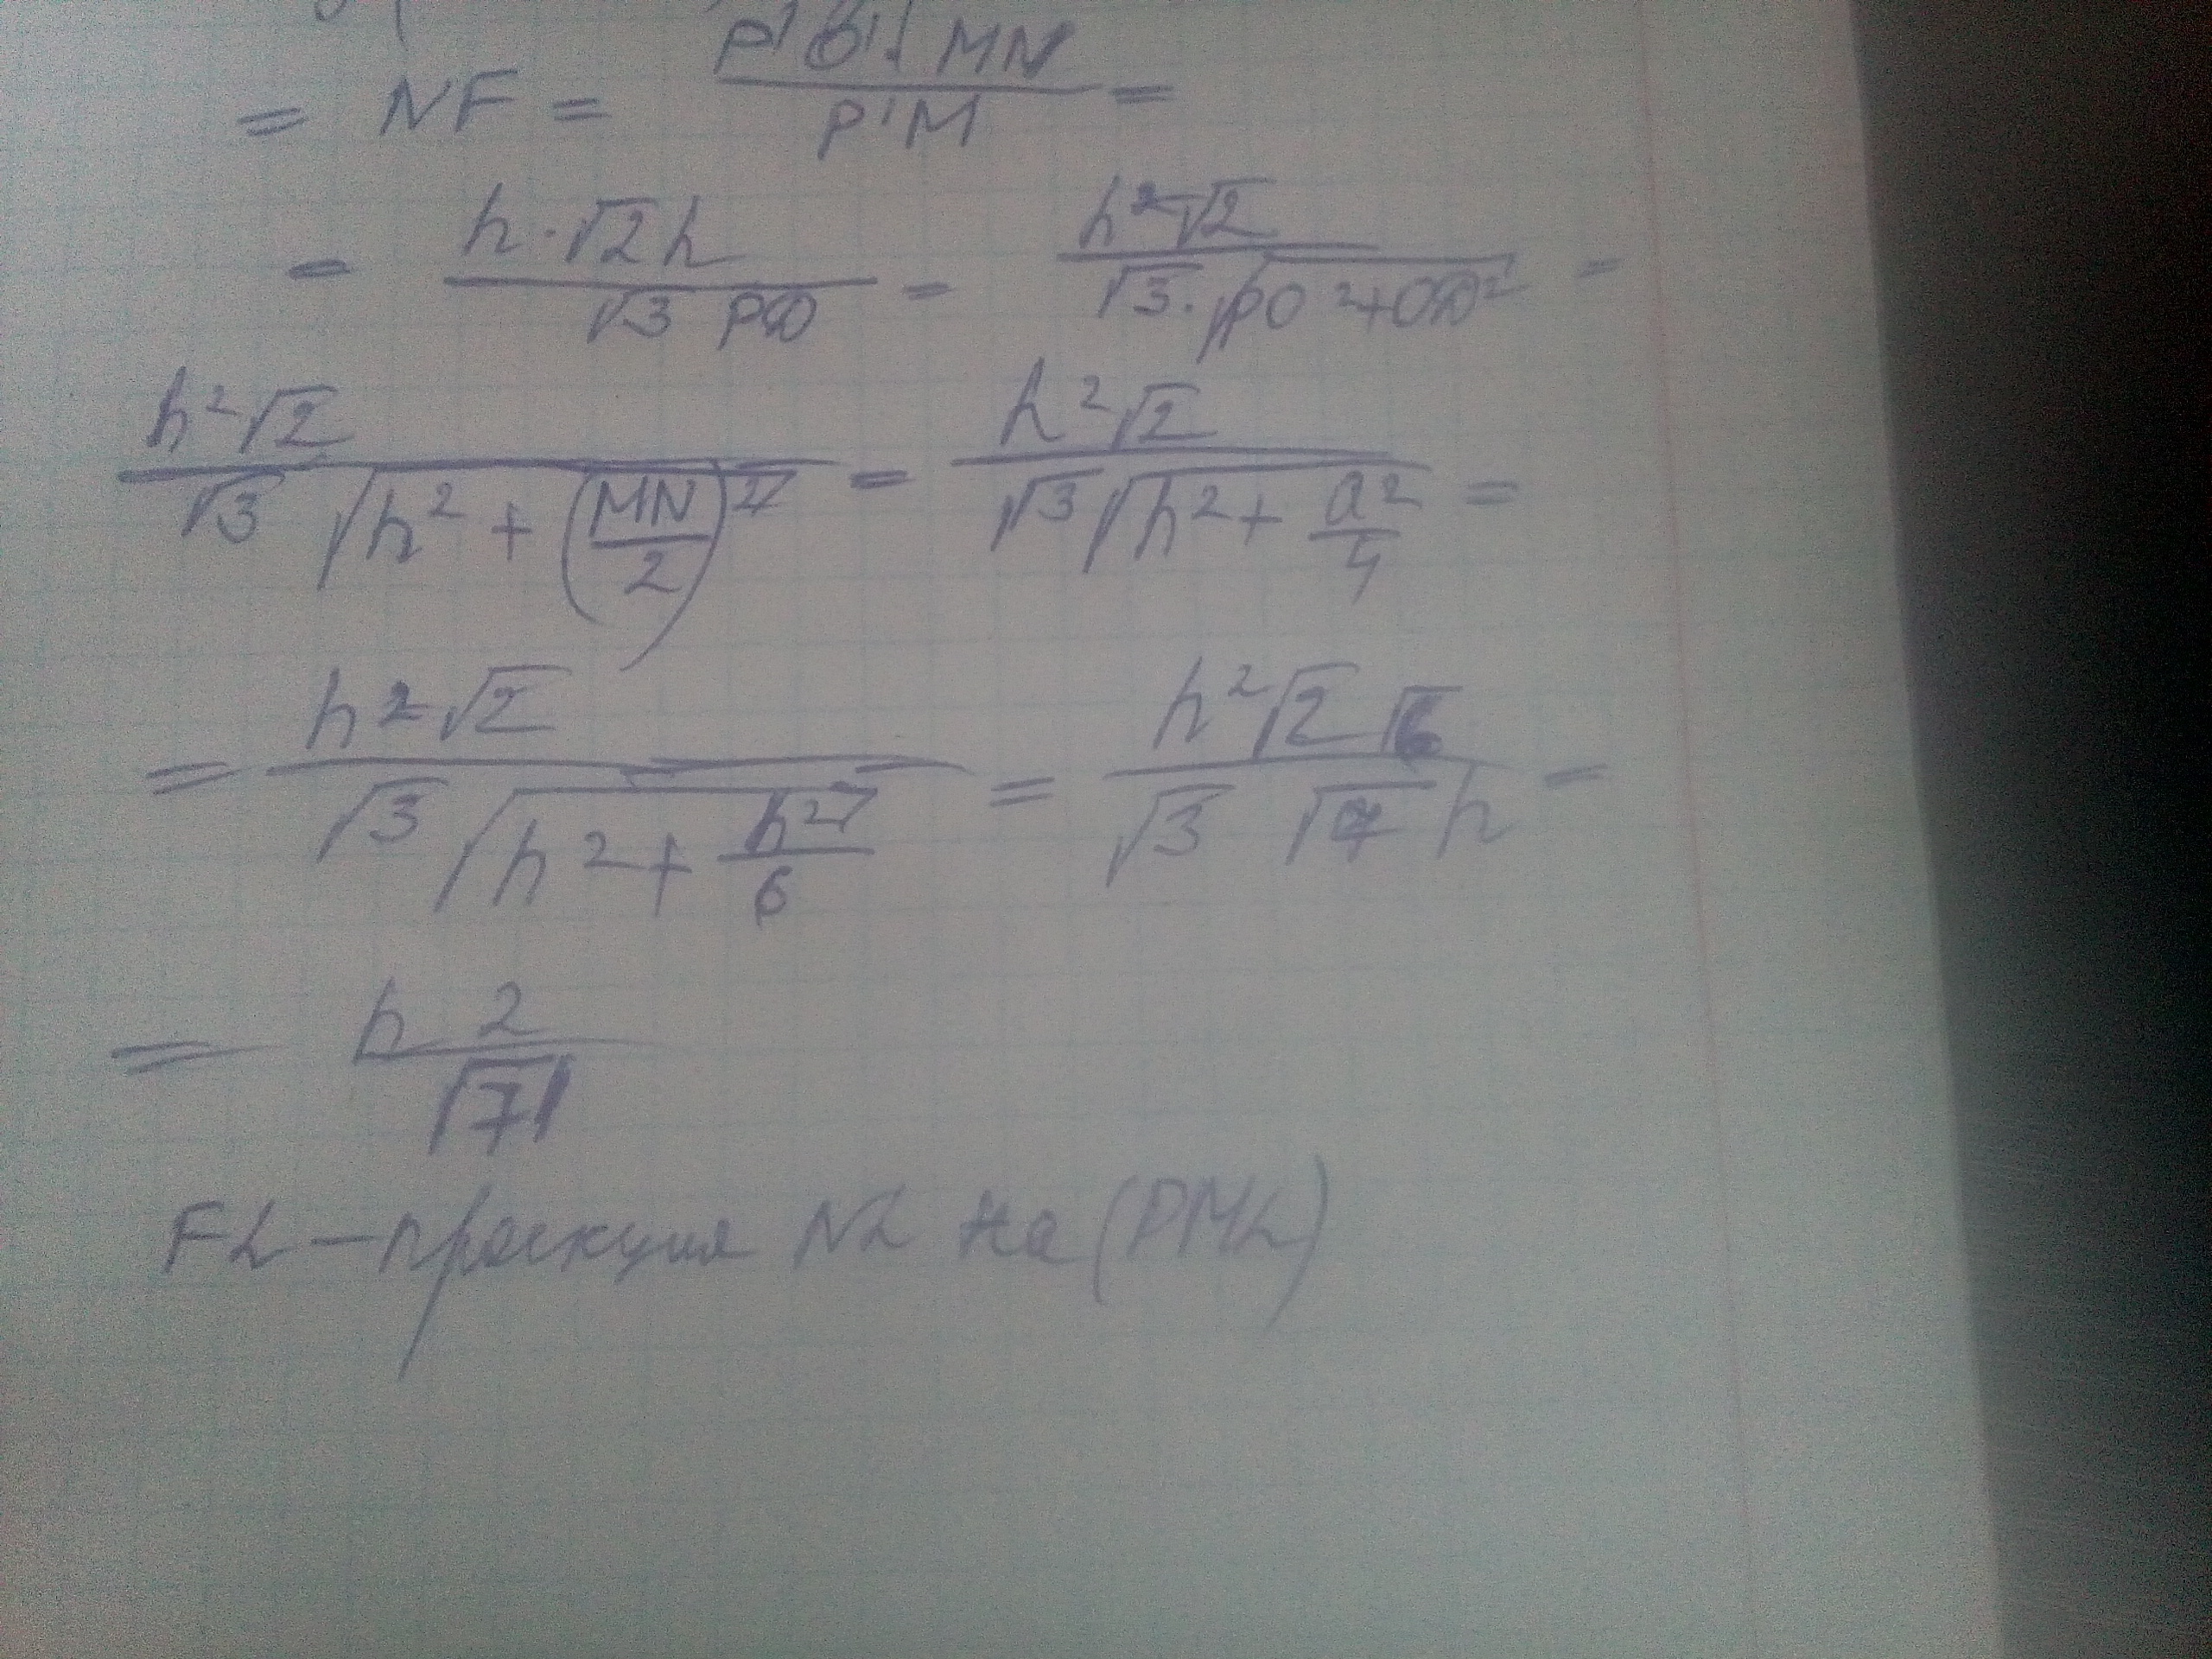 = NF = P'O' · MN / P'M =
- h · √2 h / √3 PD - h² √2 / √3 · √(PO² + OD²) -
h² √2 / √3 √(h² + (MN/2)²) - h² √2 / √3 √(h² + a²/4) =
= h² √2 / √3 √(h² + h²/6) = h² √2 √6 / √3 √7 h -
= h 2 / √7
FL - проекция NL на (PML)